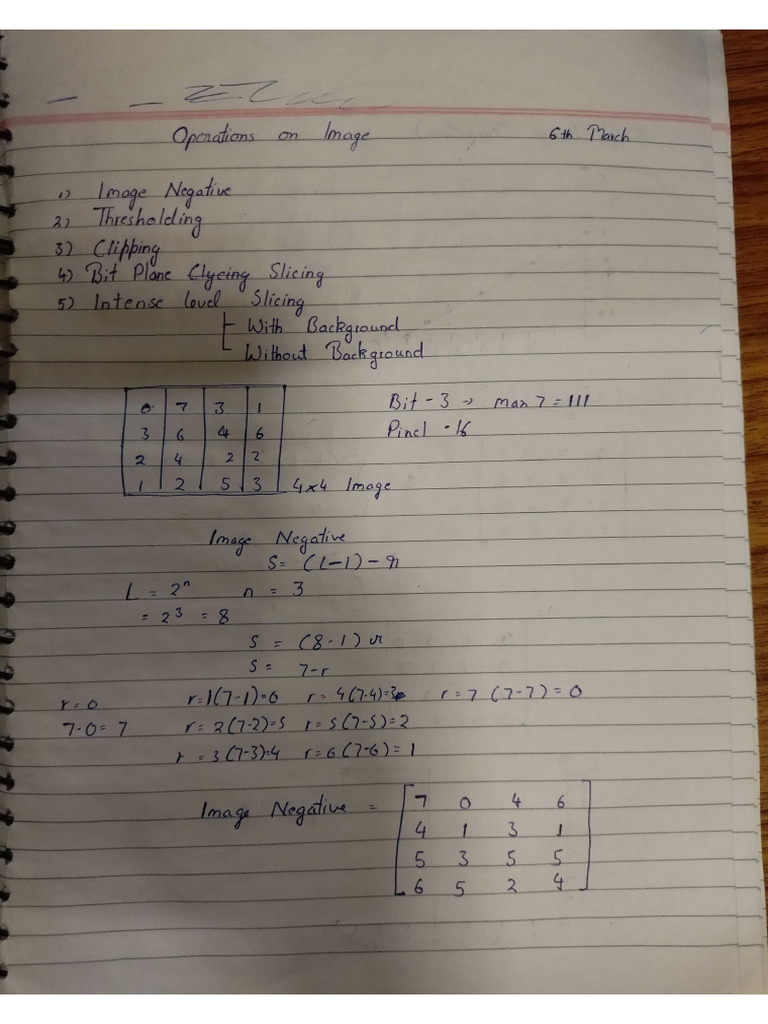 Operations on Image 6th March
1) Image Negative
2) Thresholding
3) Clipping
4) Bit Plane Clyeing Slicing
5) Intense level Slicing
With Background
Without Background
0 7 3 1 Bit - 3 → max 7 = 111
3 6 4 6 Pixel - 16
2 4 2 2
1 2 5 3 4x4 Image
Image Negative
S = (L-1) - r
L = 2ⁿ n = 3
= 2³ = 8
S = (8-1) r
S = 7-r
r = 0 r=1(7-1)=0 r= 4(7-4)=3 r = 7 (7-7) = 0
7-0= 7 r= 2(7-2)=5 r= 5(7-5)=2
r = 3(7-3)=4 r=6(7-6)= 1
Image Negative = 7 0 4 6
4 1 3 1
5 3 5 5
6 5 2 4